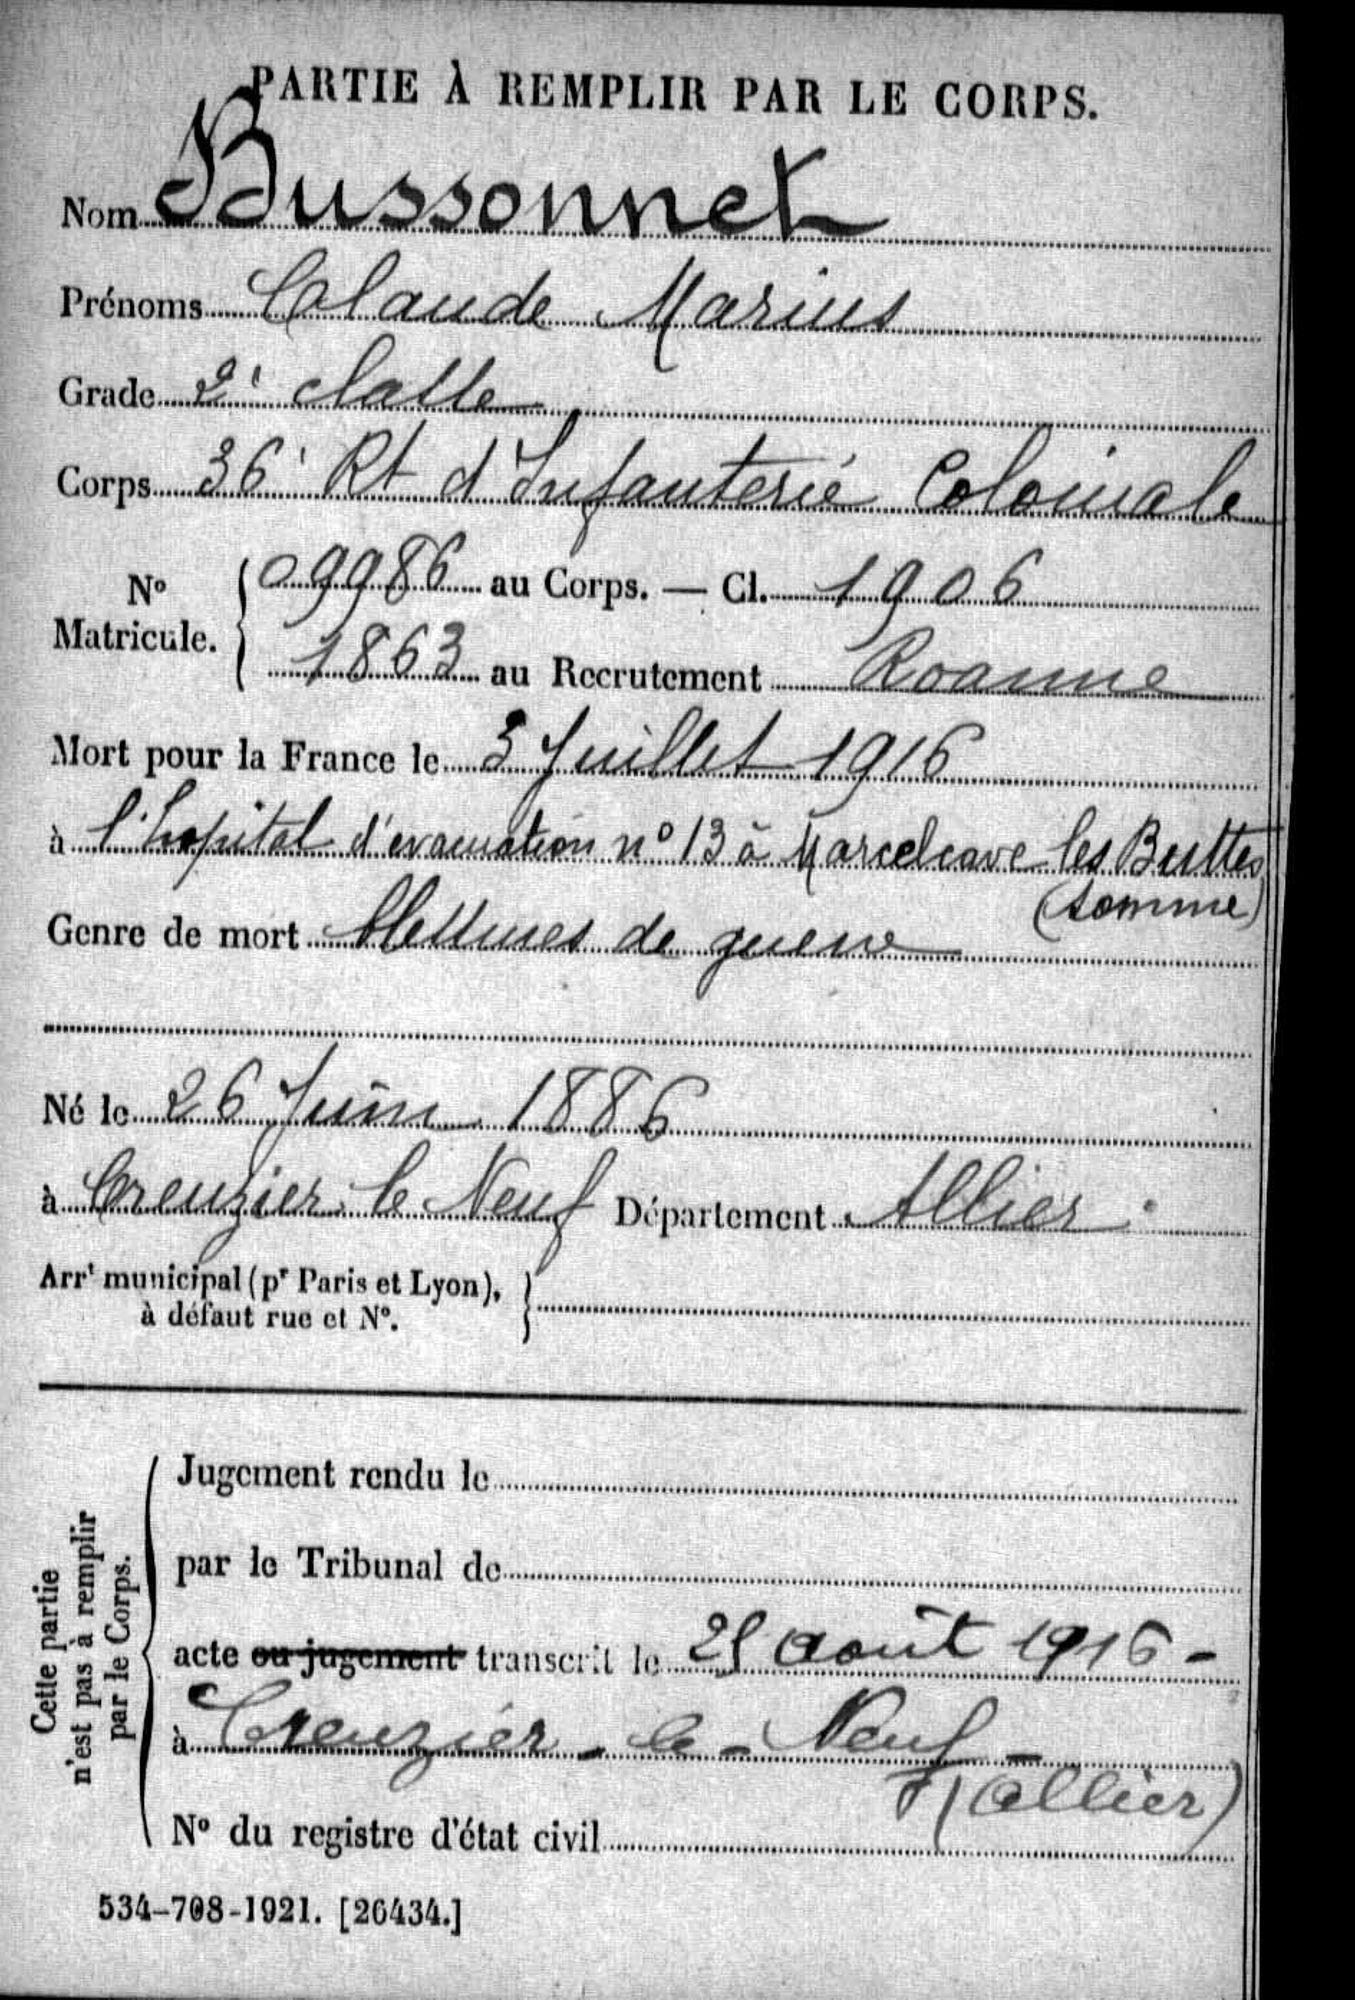 PARTIE À REMPLIR PAR LE CORPS.
Nom Bussonnet
Prénoms Claude Marius
Grade 2e classe
Corps 36e Rt d'Infanterie Coloniale
No Matricule. { 09986 au Corps. — Cl. 1906
1863 au Recrutement Roanne
Mort pour la France le 3 Juillet 1916
à l'hopital d'evacuation no 13 à Marcelcave les Buttes
(somme)
Genre de mort blessures de guerre
Né le 26 Juin 1886
à Creuzier le Neuf Département Allier
Arrt municipal (pr Paris et Lyon),
à défaut rue et No.
Cette partie
n'est pas à remplir
par le Corps.
Jugement rendu le
par le Tribunal de
acte ou jugement transcrit le août 1916 -
à Creuzier - le - Neuf -
(allier)
No du registre d'état civil
534-708-1921. [26434.]